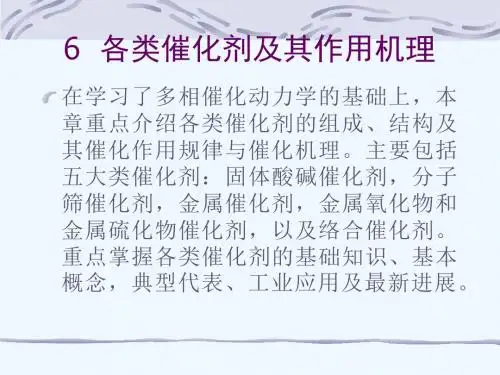 6 各类催化剂及其作用机理
在学习了多相催化动力学的基础上，本
章重点介绍各类催化剂的组成、结构及
其催化作用规律与催化机理。主要包括
五大类催化剂：固体酸碱催化剂，分子
筛催化剂，金属催化剂，金属氧化物和
金属硫化物催化剂，以及络合催化剂。
重点掌握各类催化剂的基础知识、基本
概念，典型代表、工业应用及最新进展。